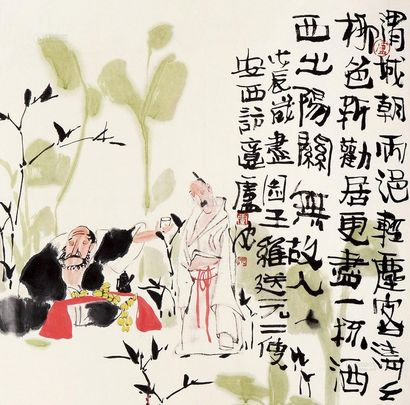 渭城朝雨浥輕塵客清々
柳色新勸君更盡一杯酒
西出陽關無故人
戊辰歲盡圖王維送元二使
安西詩意盧沉